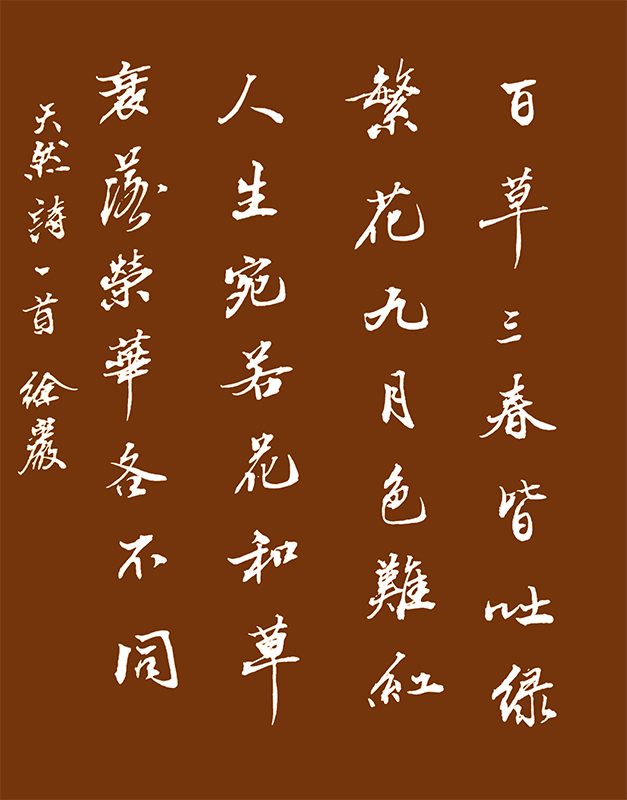 百草三春皆吐绿
繁花九月色難紅
人生宛若花和草
衰落榮華各不同
天然詩一首 徐嚴